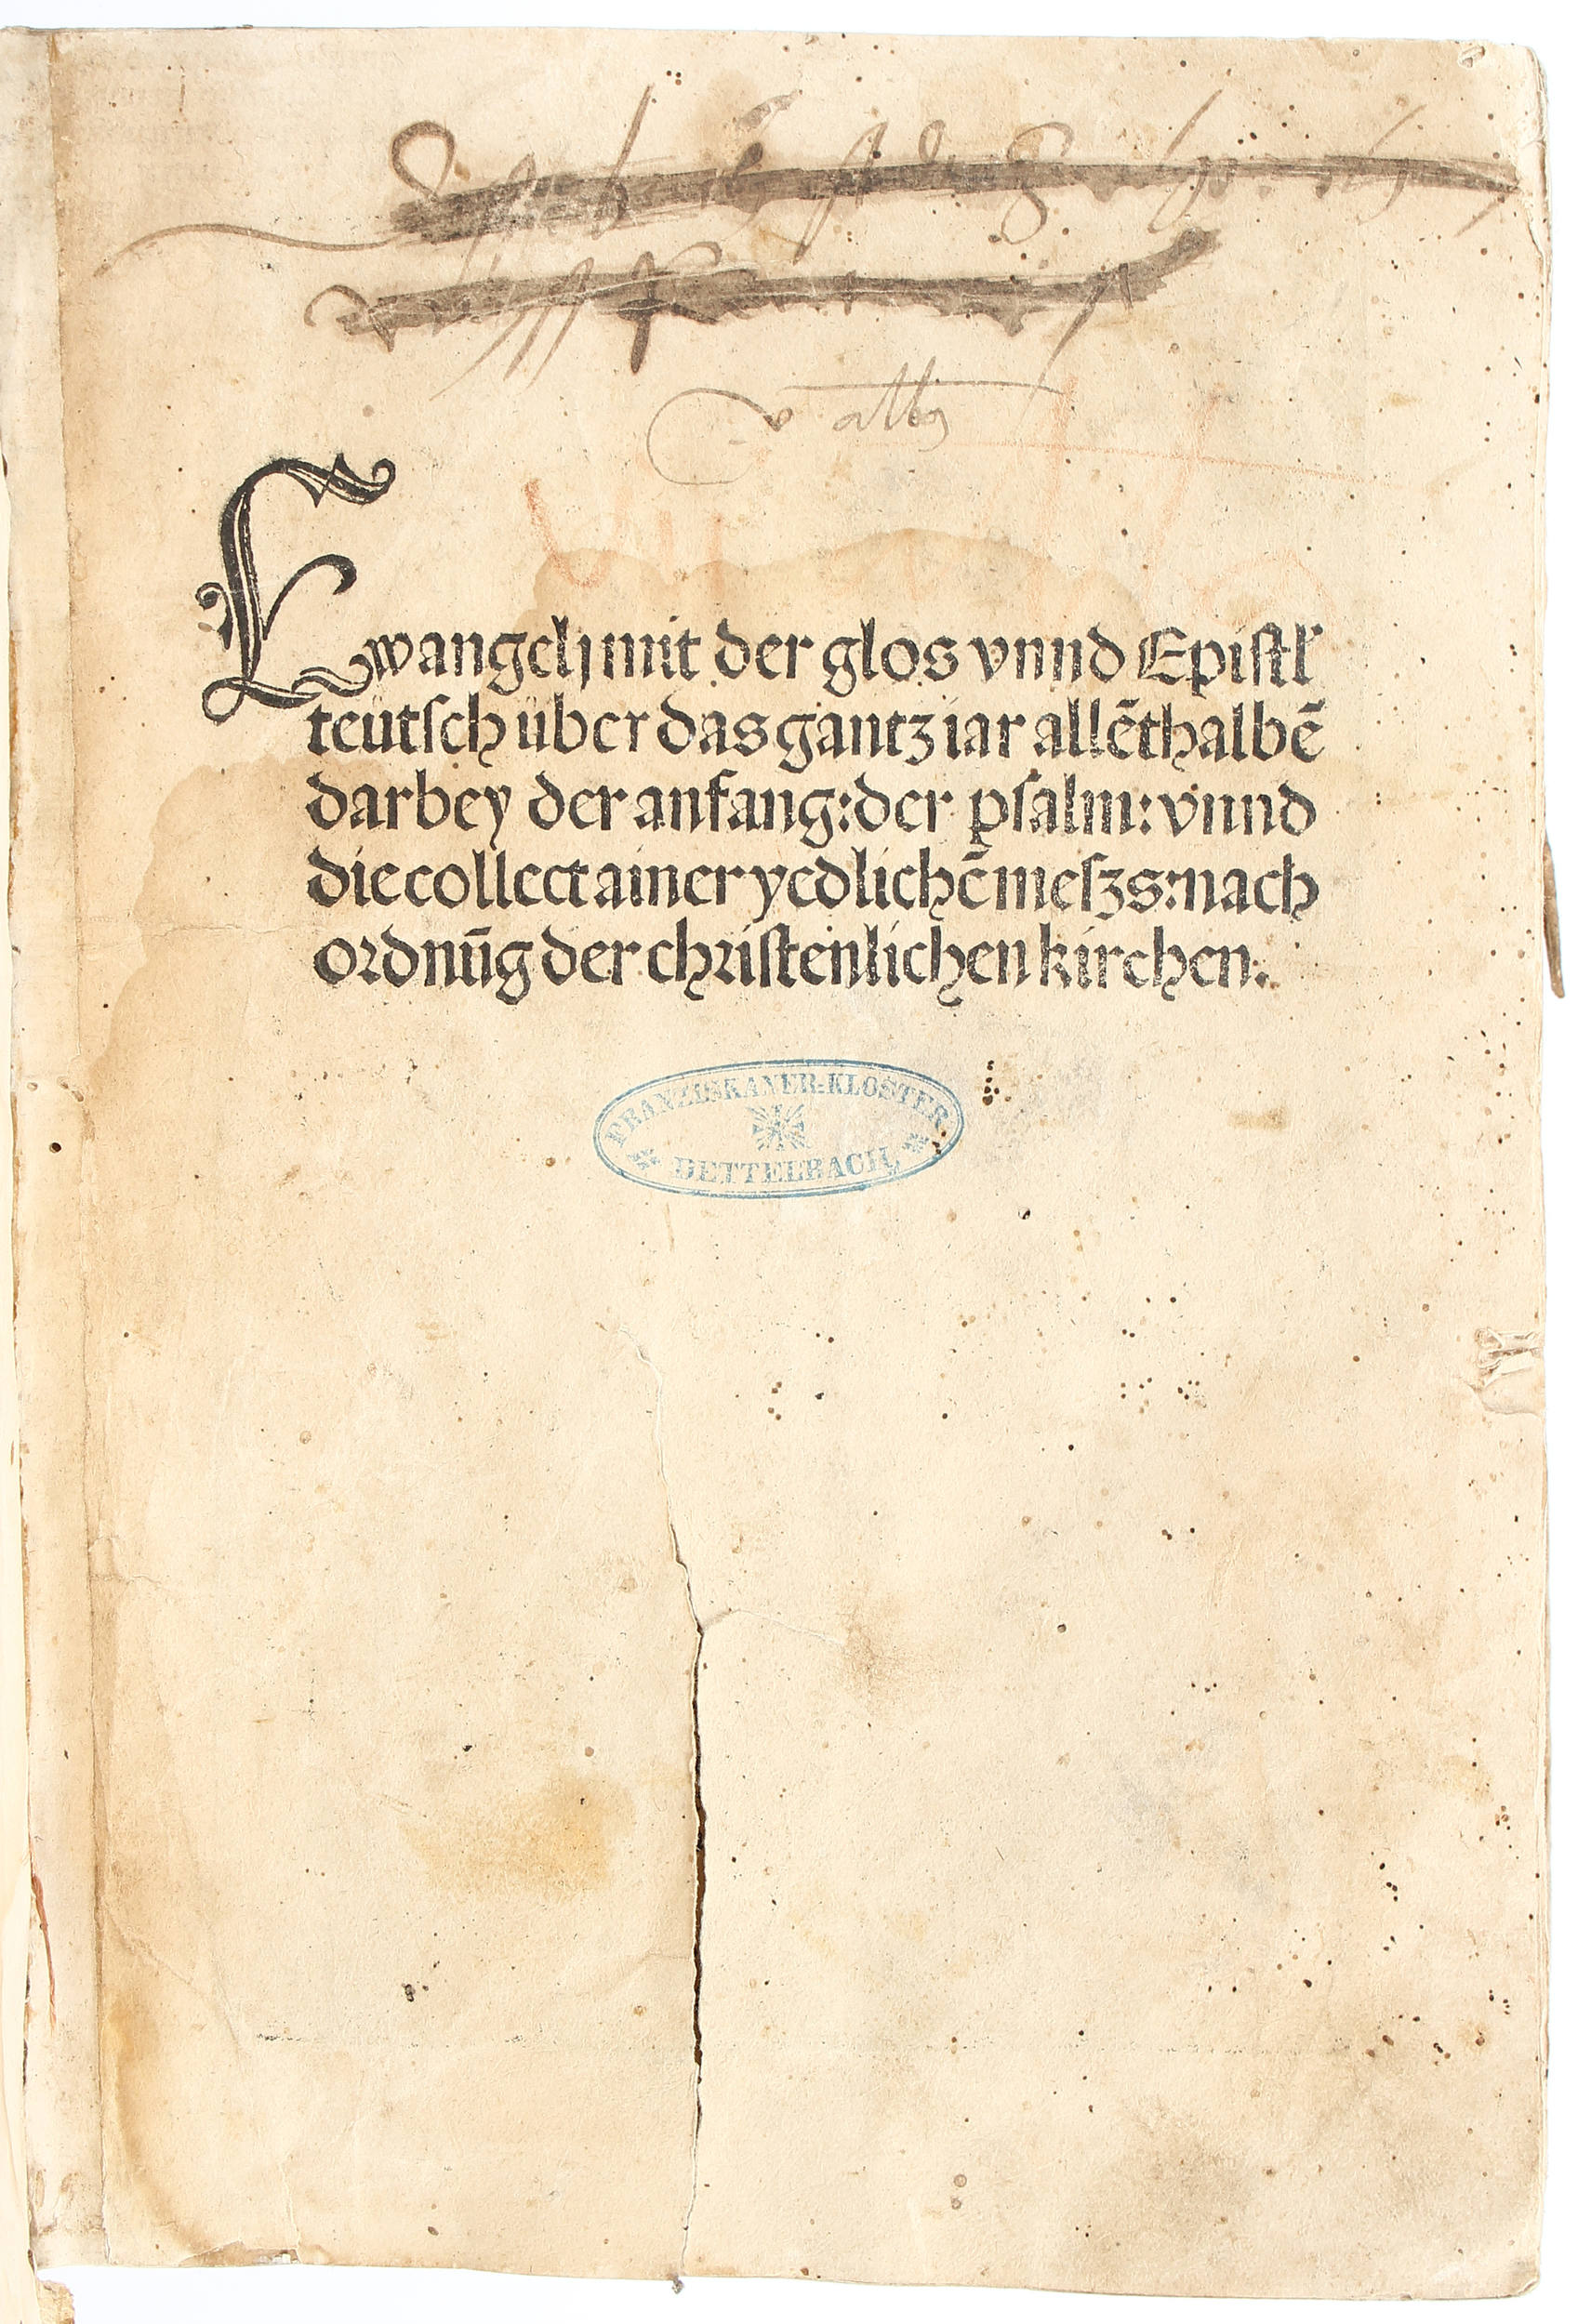 Ewangelj mit der glos vnnd Epistl̛
teütsch über das gantz iar allēthalbē
darbey der anfang: der psalm: vnnd
die collect ainer yedlichē meſzs: nach
ordnūg der christenlichen kirchen.
FRANZISKANER-KLOSTER
DETTELBACH